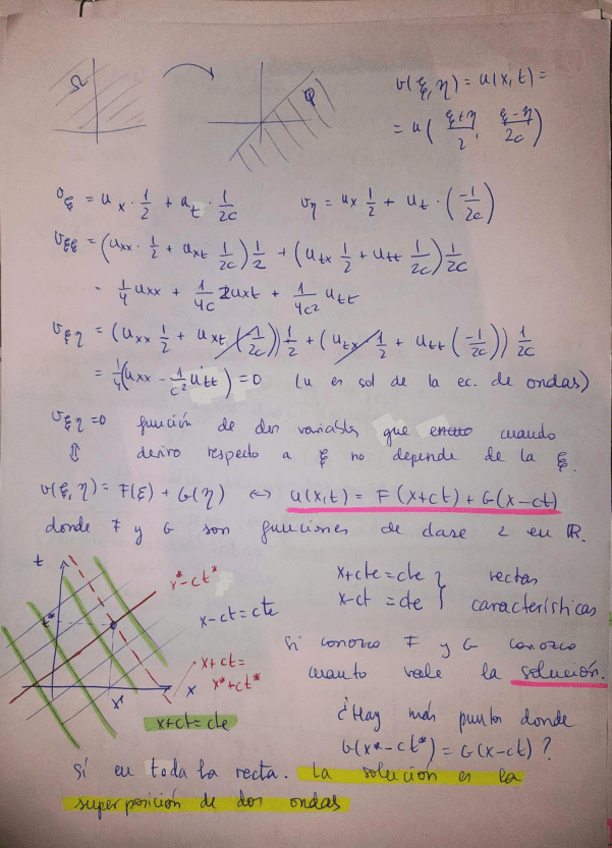 Ω
φ
v(ξ, η) = u(x, t) =
= u( (ξ+η)/2, (ξ-η)/2c )
v_ξ = u_x · 1/2 + u_t · 1/2c   v_η = u_x 1/2 + u_t · (-1/2c)
v_ξξ = (u_xx · 1/2 + u_xt 1/2c) 1/2 + (u_tx 1/2 + u_tt 1/2c) 1/2c
= 1/4 u_xx + 1/4c 2u_xt + 1/4c² u_tt
v_ξη = (u_xx 1/2 + u_xt (-1/2c)) 1/2 + (u_tx · 1/2 + u_tt (-1/2c)) 1/2c
= 1/4 (u_xx - 1/c² u_tt) = 0 (u es sol de la ec. de ondas)
v_ξη = 0 función de dos variables que cuando
⇕ derivo respecto a ξ no depende de la ξ.
v(ξ, η) = F(ξ) + G(η) ↔ u(x,t) = F(x+ct) + G(x-ct)
donde F y G son funciones de clase 2 en ℝ.
t
x*-ct*
x-ct = cte
t*
x+ct =
x*+ct*
x*
x
x+ct = cte
x+cte = cte } rectas
x-ct = cte } características
Si conozco F y G conozco
cuanto vale la solución.
¿Hay más puntos donde
G(x*-ct*) = G(x-ct)?
Sí en toda la recta. La solución es la
superposición de dos ondas